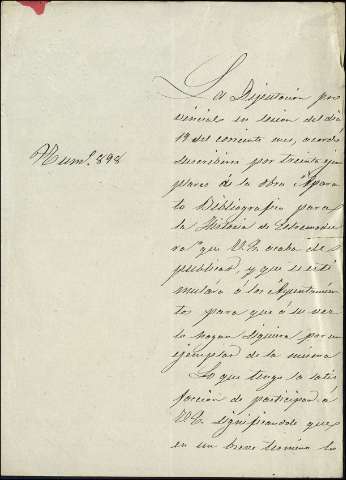 La Diputación pro
vincial en sesion del dia
19 del corriente mes, acordó
Numº. 898
suscribirse por treinta ejem
plares á la obra "Apara
to Bibliografico para
la Historia de Estremadu
ra" que V.E. acaba de
publicar, y que se esti
mulára á los Ayuntamien
tos para que á su vez
lo hagan siquiera por un
ejemplar de la misma
Lo que tengo la satis
faccion de participar á
V.E. significandole que
en un breve termino le